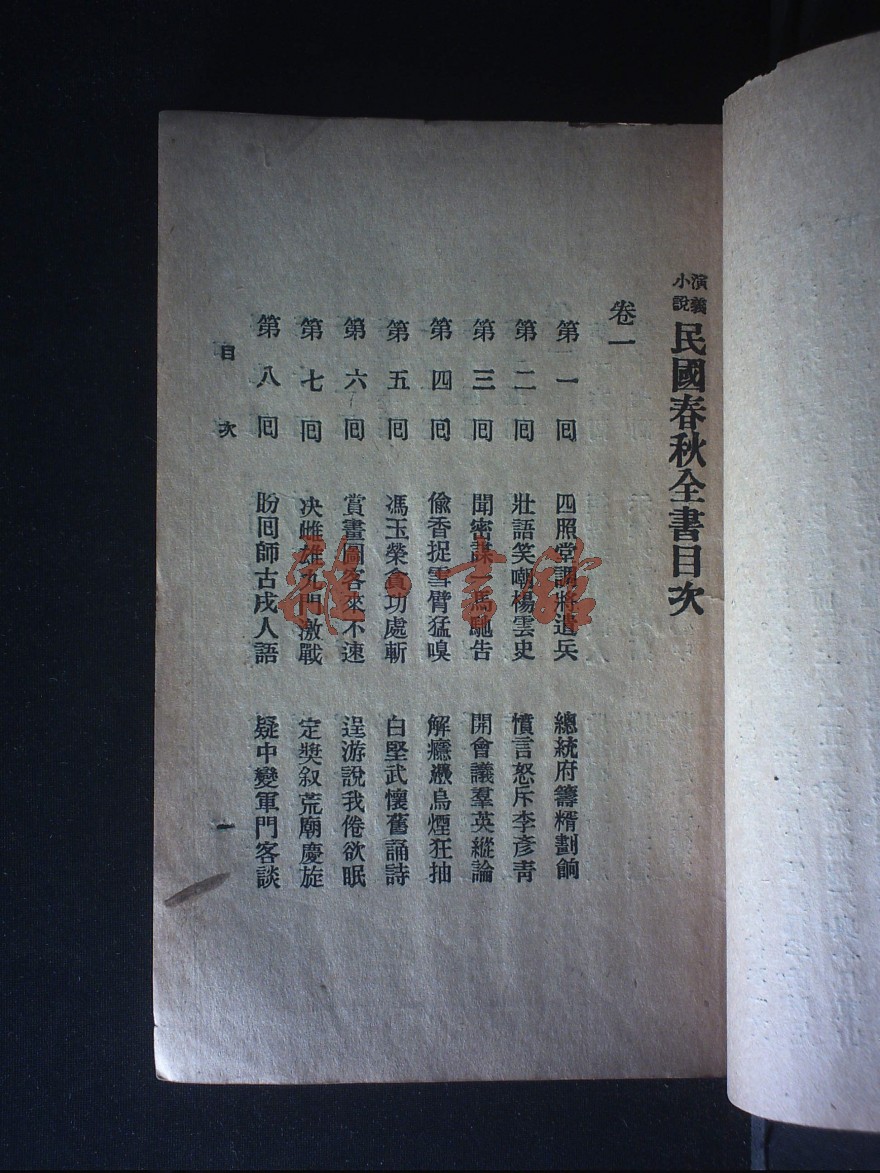 演義小說 民國春秋全書目次
卷一
第一回 四照堂調將遣兵 總統府籌糈劃餉
第二回 壯語笑嘲楊雲史 憤言怒斥李彥青
第三回 聞密謀一馬馳告 開會議羣英縱論
第四回 偸香捉雪臂猛嗅 解癮遞烏煙狂抽
第五回 馮玉榮貪功處斬 白堅武懷舊誦詩
第六回 賞畫圖客來不速 逞游說我倦欲眠
第七回 决雌雄九門激戰 定獎叙荒廟慶旋
第八回 盼囘師古戍人語 疑中變軍門客談
目次 一